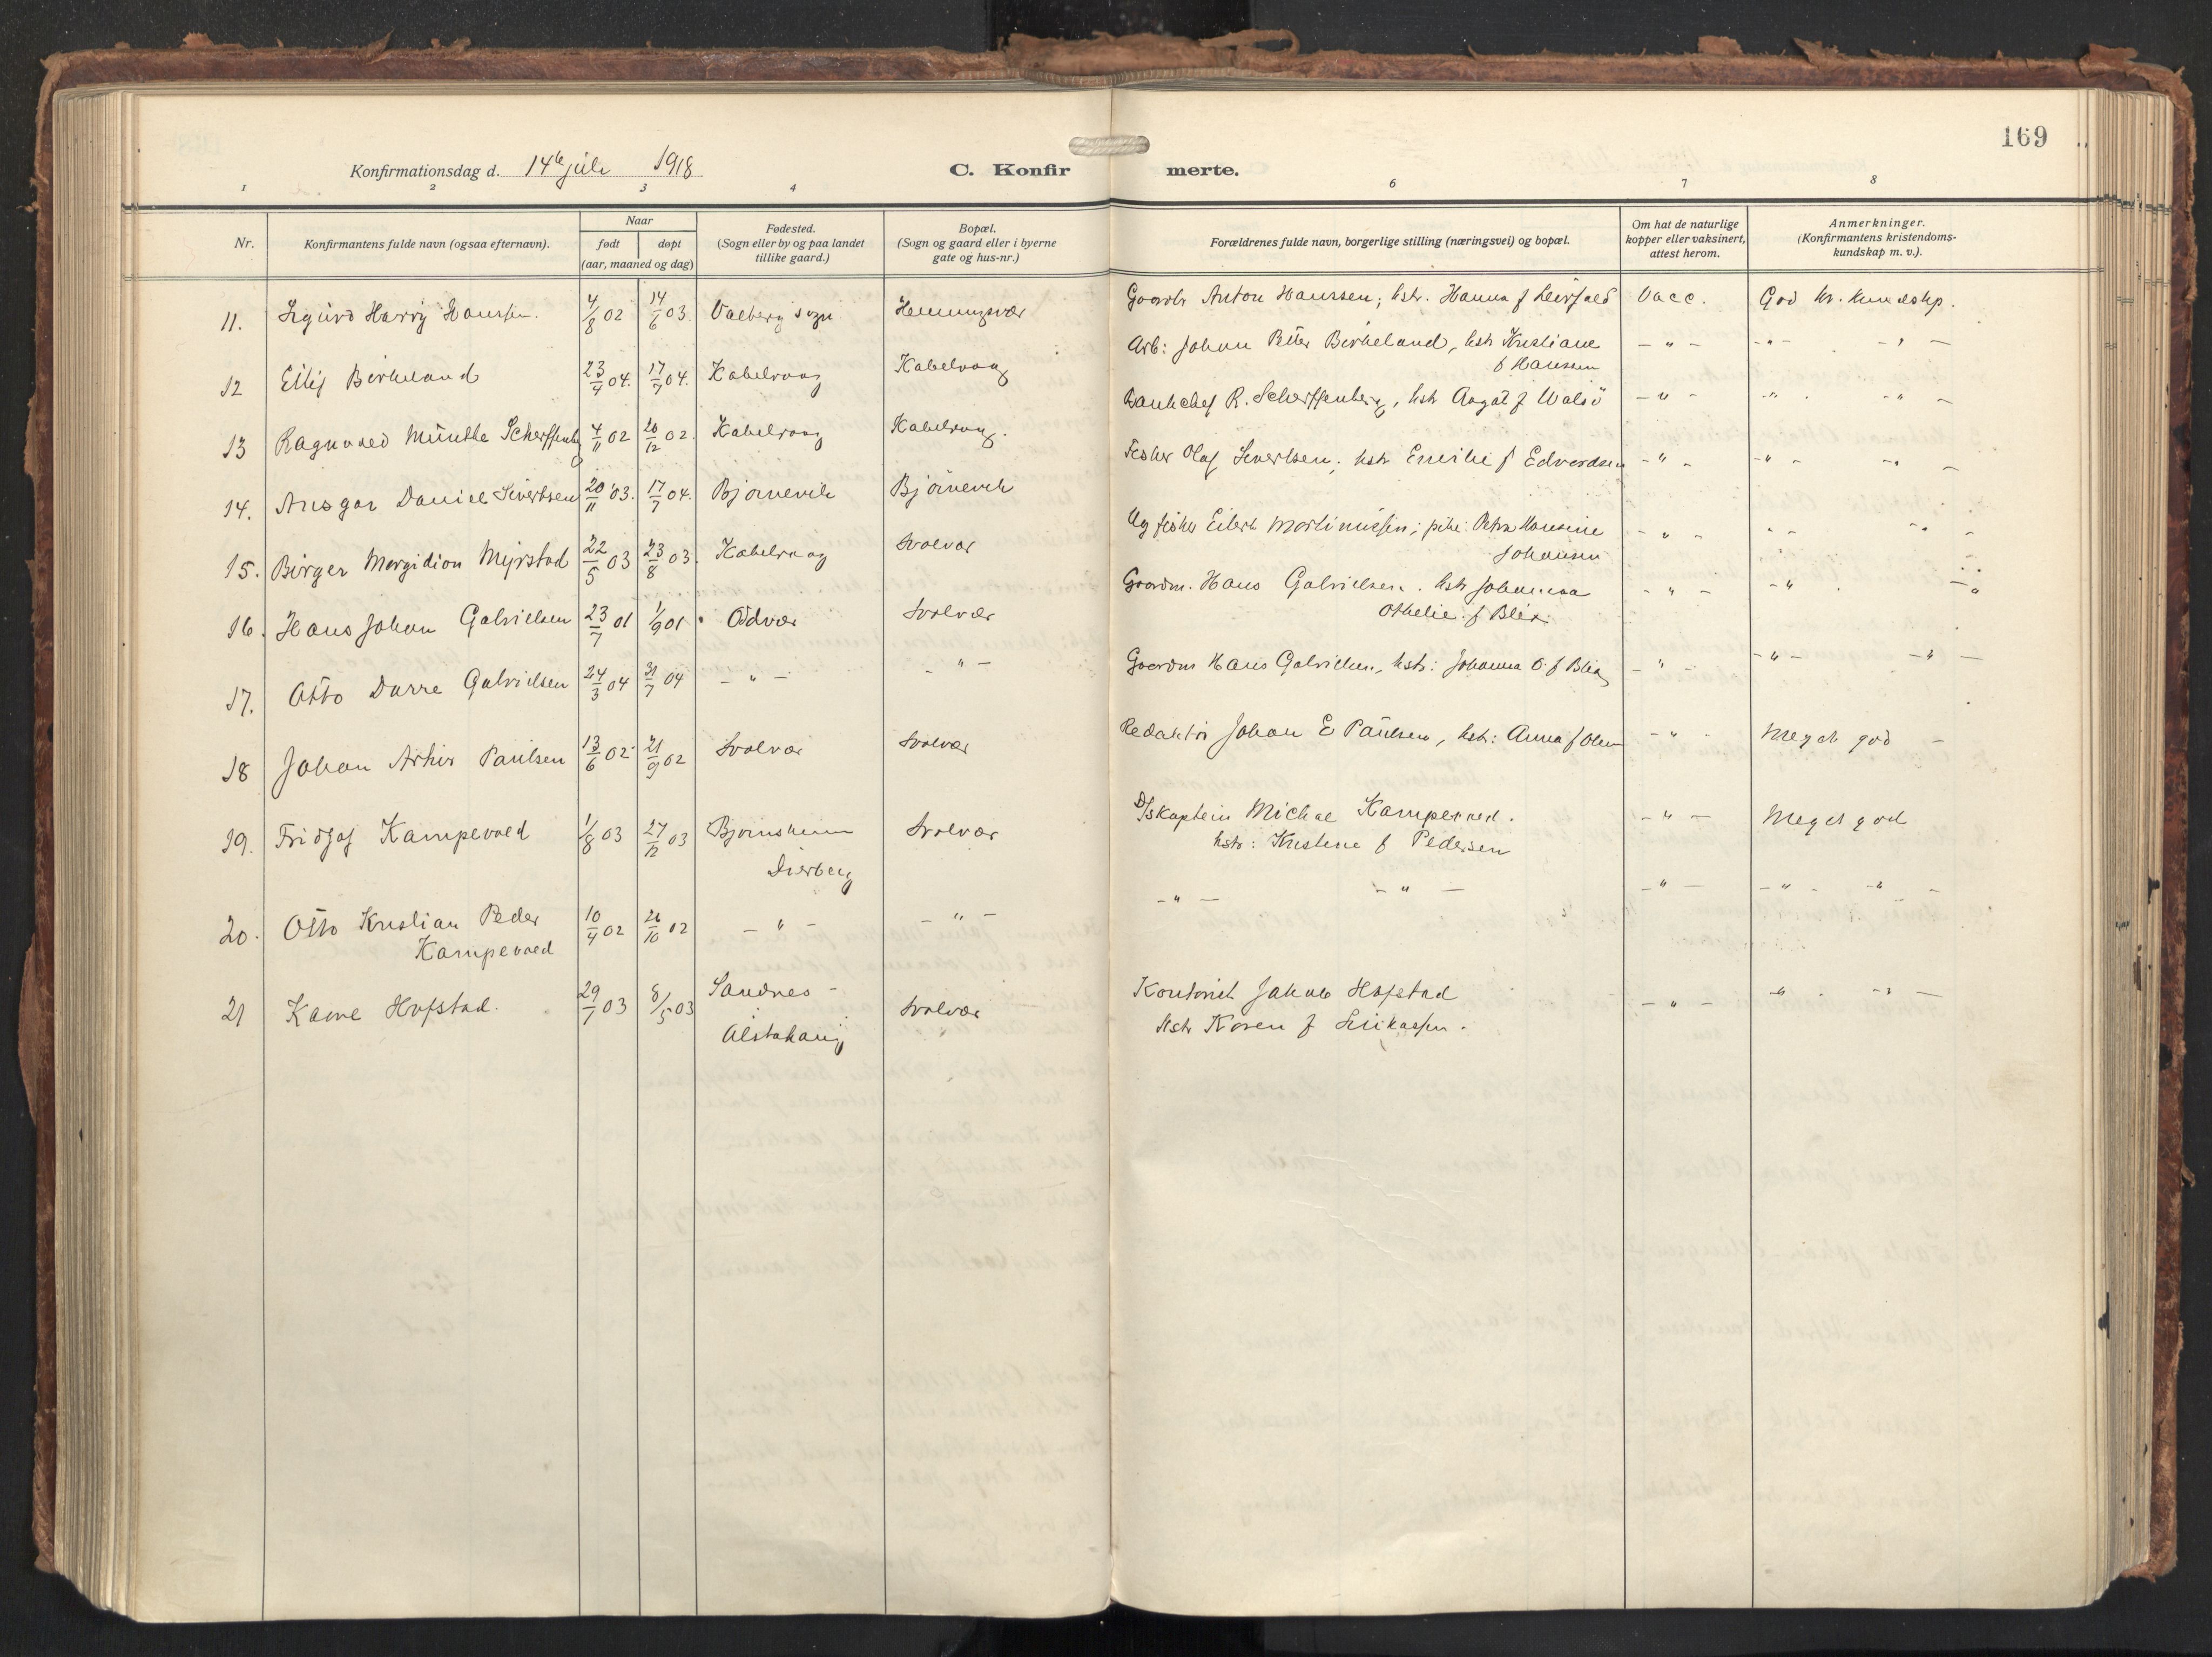 169
Konfirmationsdag d. 14de juli 1918
C. Konfir merte.
1 2 3 4 6 7 8
Nr.
Konfirmantens fulde navn (ogsaa efternavn).
Naar
født døpt
(aar, maaned og dag)
Fødested.
(Sogn eller by og paa landet
tillike gaard.)
Bopæl.
(Sogn og gaard eller i byerne
gate og hus-nr.)
Forældrenes fulde navn, borgerlige stilling (næringsvei) og bopæl.
Om hat de naturlige
kopper eller vaksinert,
attest herom.
Anmerkninger.
(Konfirmantens kristendoms-
kundskap m. v.).
11. Sigurd Harry Hanssen. 4/8 02 14/6 03. Valberg sogn Henningsvær Anton Hanssen; hstr. Hanna f Vacc. God kr. kundskp.
12 Eilif Birkeland 23/4 04. 17/7 04. Kabelvaag Kabelvaag Arb: Johan Peter Birkeland, hstr Kristiane
f Hansen - " - - " - - " -
13 Ragnvald Münthe Scherffenberg 4/11 02 26/12 02. Kabelvaag Kabelvaag. Bankchef R. Scherffenberg, hstr Aagot f Walsö - " - - " - - " -
14. Ansgar Daniel Sivertsen 20/11 03. 17/7 04. Bjørnevik Bjørnevik Fisker Olaf Sivertsen, hstr Emilie f Edvardsen - " - - " - - " -
15. Birger Margidion Myrstad 22/5 03 23/8 03. Kabelvaag Svolvær Ug fisker Eilert Martinussen; pike: Petra Hansine
Johansen - " - - " - - " -
16. Hans Johan Gabrielsen 23/7 01 1/9 01 Oddvær Svolvær Gaardm. Hans Gabrielsen. hstr Johanna
Othelie f Blix - " - - " - - " -
17. Otto Darre Gabrielsen 24/3 04 31/7 04 - " - - " - Gaardm Hans Gabrielsen, hstr: Johanna O. f Blix - " - - " - - " -
18 Johan Arthur Paulsen 13/6 02 21/9 02 Svolvær Svolvær Redaktør Johan E Paulsen, hstr: Anna f Olsen - " - Meget god -
19. Fridjof Kampevold 1/8 03 27/12 03 Bjørnsheim
Dverberg Svolvær D/Skaptein Michal Kampevold.
hstr: Kristine f Pedersen - " - Meget god
20. Otto Kristian Peder
Kampevold 10/4 02 26/10 02 - " - - " - - " - - " - - " - - " - - " -
21 Kaare Hofstad. 29/1 03 8/5 03 Sandnes -
Alstahaug Svolvær Kontorist Jakob Hofstad
hstr Karen f - " - - " - - " -